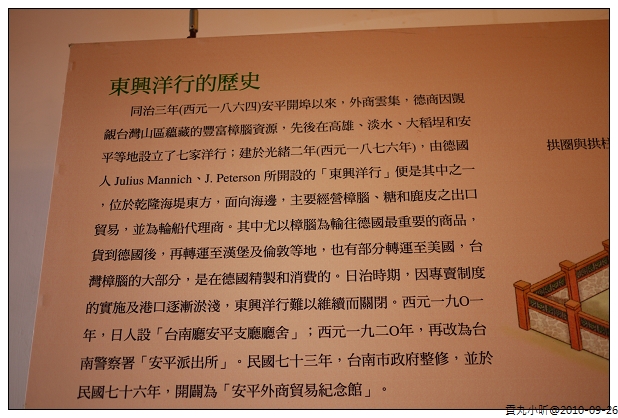 東興洋行的歷史
同治三年(西元一八六四)安平開埠以來，外商雲集，德商因覬
覦台灣山區蘊藏的豐富樟腦資源，先後在高雄、淡水、大稻埕和安
平等地設立了七家洋行；建於光緒二年(西元一八七六年)，由德國
人 Julius Mannich、J. Peterson 所開設的「東興洋行」便是其中之一
，位於乾隆海堤東方，面向海邊，主要經營樟腦、糖和鹿皮之出口
貿易，並為輪船代理商。其中尤以樟腦為輸往德國最重要的商品，
貨到德國後，再轉運至漢堡及倫敦等地，也有部分轉運至美國，台
灣樟腦的大部分，是在德國精製和消費的。日治時期，因專賣制度
的實施及港口逐漸淤淺，東興洋行難以維續而關閉。西元一九O一
年，日人設「台南廳安平支廳廳舍」；西元一九二O年，再改為台
南警察署「安平派出所」。民國七十三年，台南市政府整修，並於
民國七十六年，開闢為「安平外商貿易紀念館」。
拱圈與拱柱
貢丸小昕@2010-09-26